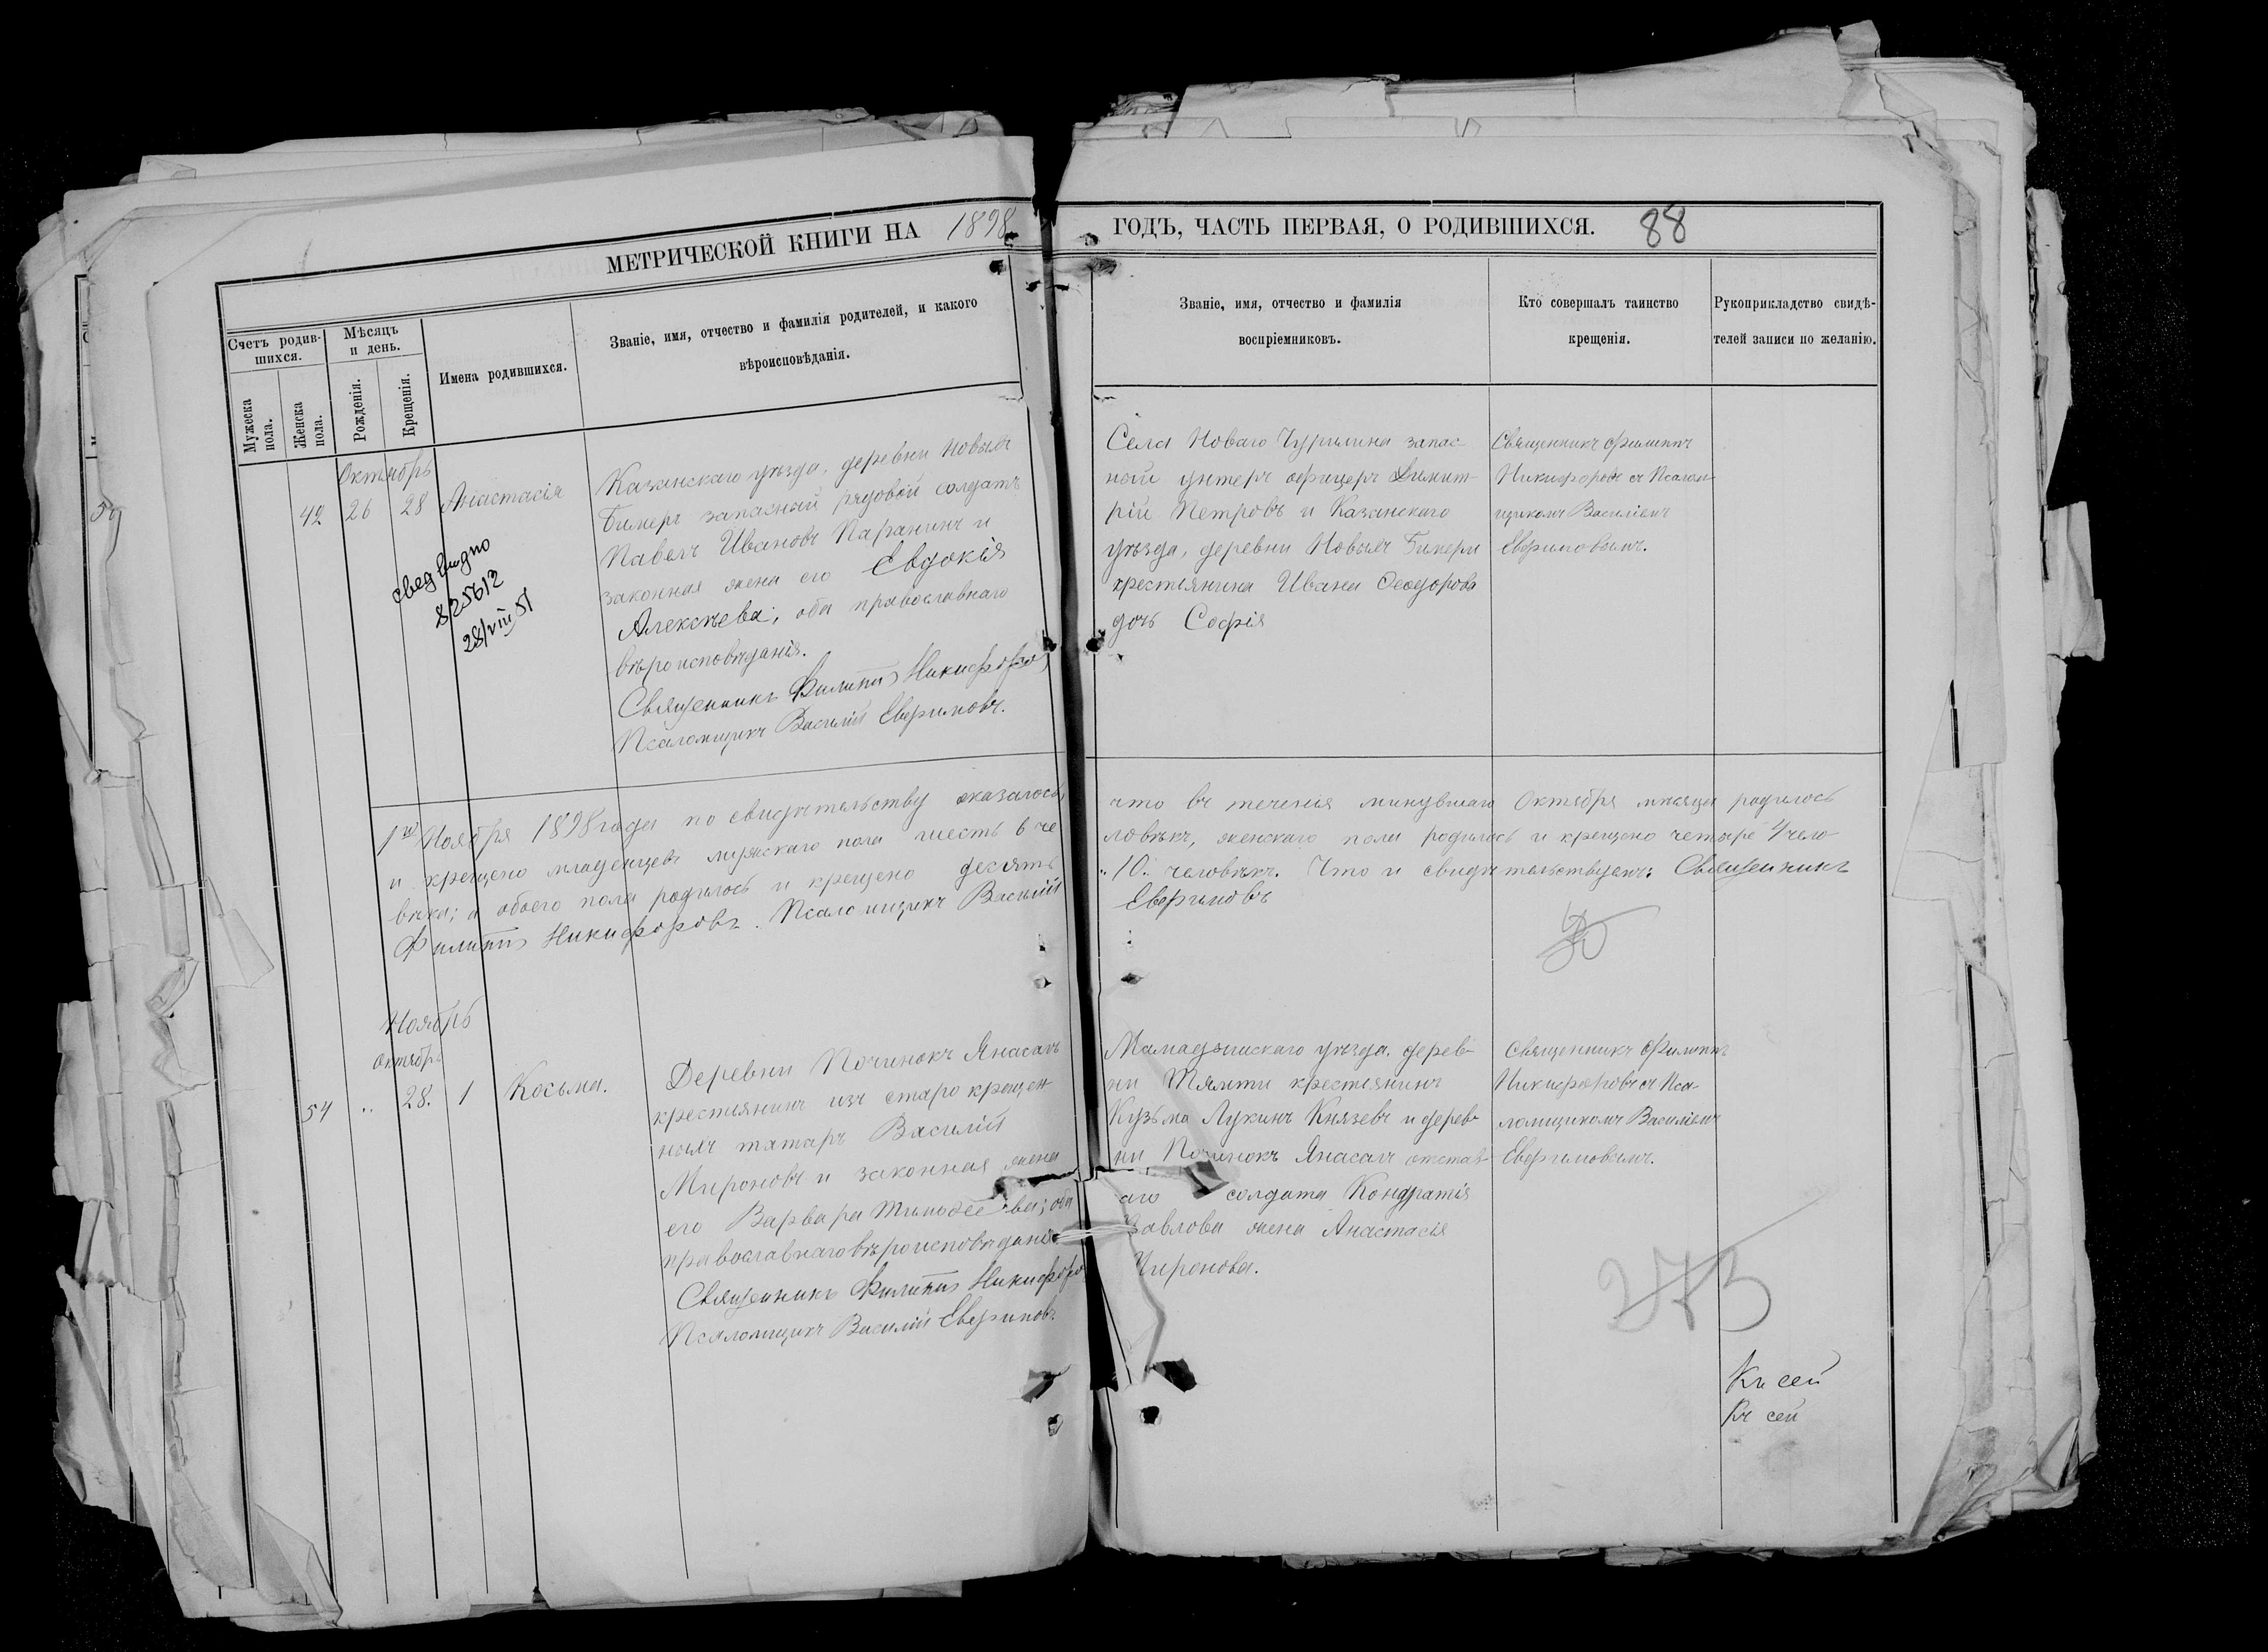 МЕТРИЧЕСКОЙ КНИГИ НА 1898
ГОДЪ, ЧАСТЬ ПЕРВАЯ, О РОДИВШИХСЯ. 88
Счетъ родив-
шихся.
Мужеска
пола.
Женска
пола.
Мѣсяцъ
и день.
Рожденія.
Крещенія.
Имена родившихся.
Званіе, имя, отчество и фамилія родителей, и какого
вѣроисповѣданія.
Званіе, имя, отчество и фамилія
воспріемниковъ.
Кто совершалъ таинство
крещенія.
Рукоприкладство свидѣ-
телей записи по желанію.
Октябрь
42 26 28 Анастасія
Казанскаго уѣзда, деревни Новыхъ
Бимеръ запасный рядовой солдатъ
Павелъ Ивановъ Паранинъ и
законная жена его Евдокія
Алексѣева; оба православнаго
вѣроисповѣданія.
Священникъ Филиппъ Никифоров
Псаломщикъ Василій Евфимовъ.
825612
28/VIII 51
Села Новаго Чурилина запас-
ной унтеръ офицеръ Димит-
рій Петровъ и Казанскаго
уѣзда, деревни Новыхъ Бимери
крестьянина Ивана Ѳеодорова
дочь Софія
Священникъ Филиппъ
Никифоровъ съ Псалом-
щикомъ Василіемъ
Евфимовымъ.
1го Ноября 1898 года по свидѣтельству оказалось,
и крещено младенцевъ мужскаго пола шесть 6 че
вѣка; а обоего пола родилось и крещено десять
Филиппъ Никифоровъ. Псаломщикъ Василій
что въ теченія минувшаго Октября мѣсяца родилось
ловѣкъ, женскаго пола родилось и крещено четыре 4 чело
"10" человѣкъ. Что и свидѣтельствуемъ: Священникъ
Евфимовъ
Ноябрь
Октябрь
54 " 28. 1 Косьма.
Деревни Починокъ Янасалъ
крестьянинъ изъ старокрещен
ныхъ татаръ Василій
Мироновъ и законная жена
его Варвара Тимоѳеева; оба
православнаго вѣроисповѣданія
Священникъ Филиппъ Никифоро
Псаломщикъ Василій Евфимовъ.
Мамадышскаго уѣзда, дерев-
ни Тямти крестьянинъ
Кузьма Лукинъ Князевъ и дерев-
ни Починокъ Янасалъ отстав
аго солдата Кондратія
Павлова жена Анастасія
Миронова.
Священникъ Филиппъ
Никифоровъ съ Пса-
ломщикомъ Василіемъ
Евфимовымъ.
273
Къ сей
Къ сей